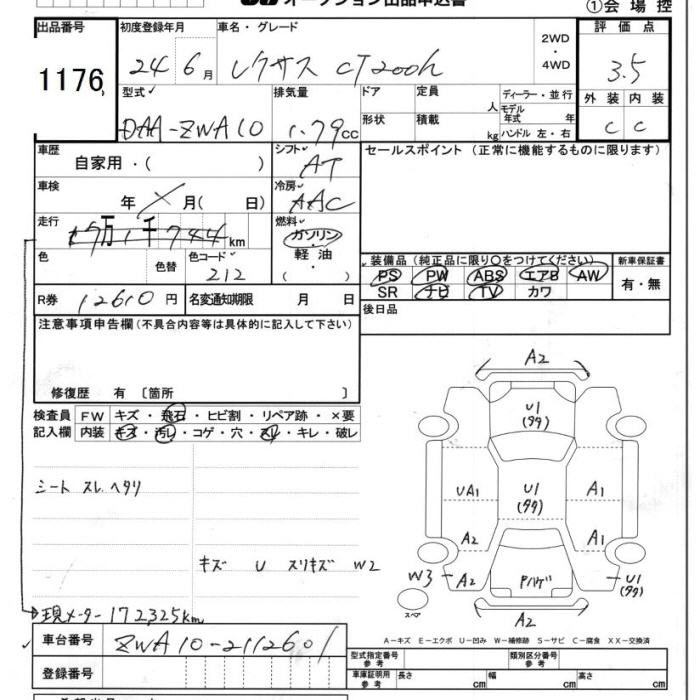 オークション出品申込書
①会場控
出品番号
1176
初度登録年月
24 6月
車名・グレード
レクサス CT200h
2WD
・
4WD
評価点
3.5
型式
DAA-ZWA10
排気量
1.79cc
ドア
形状
定員 人
積載 kg
ディーラー・並行
モデル
年式 年
ハンドル 左・右
外装 内装
C C
車歴
自家用・( )
シフト
AT
セールスポイント (正常に機能するものに限ります)
車検
年 × 月( 日)
冷房
AAC
走行
17万1千744km
燃料
ガソリン
・
軽油
( )
色
色替
色コード
212
装備品 (純正品に限り○をつけてください)
PS PW ABS エアB AW
SR ナビ TV カワ
新車保証書
有・無
R券 12610円
名変通知期限 月 日
後日品
注意事項申告欄 (不具合内容等は具体的に記入して下さい)
修復歴 有 〔箇所 〕
検査員
記入欄
FW キズ・飛石・ヒビ割・リペア跡・×要
内装 キズ・汚レ・コゲ・穴・スレ・キレ・破レ
シート スレ ヘタリ
キズ U スリキズ W2
→現メーター 172325km
A2
U1
(タタ)
UA1
U1
(タタ)
A1
A2
A1
W3
A2
Pハゲ
U1
(タタ)
A2
スペア
A-キズ E-エクボ U-凹み W-補修跡 S-サビ C-腐食 XX-交換済
車台番号
ZWA10-2112601
登録番号
型式指定番号
参考
類別区分番号
参考
車庫証明用
参考
長さ cm
幅 cm
高さ cm